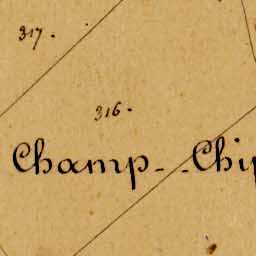 317.
316.
Champ - - Chi